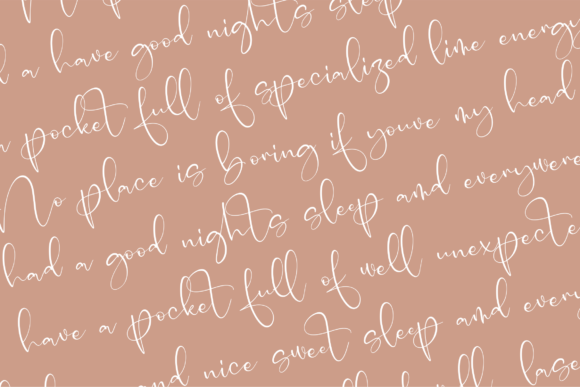 a have good nights sleep
pocket full of specialized lime energy
No place is boring if youve my head
had a good nights sleep amd everywere
have a pocket full of well unexpecte
and nice sweet sleep amd every